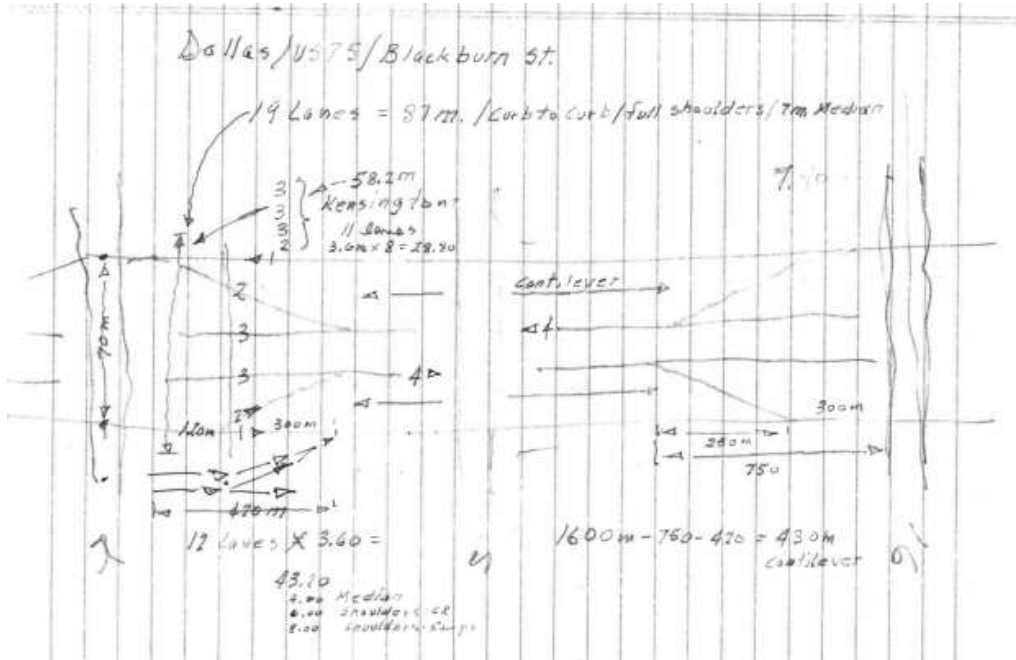 Dallas/US75/Blackburn St.
19 Lanes = 87m. /Curb to curb/full shoulders/7m Median
3
3
3
2
58.2m
Kensington
11 lanes
3.6m x 8 = 28.80
1
2
3
3
2
1
4
70m
120m
300m
420m
Cantilever
4
300m
250m
750
12 Lanes x 3.60 =
43.20
4.00 Median
6.00 Shoulders
8.00 Shoulders
1600m-750-420 = 430m
Cantilever